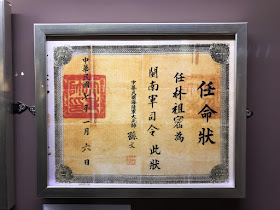 任命狀
任林祖密為
閩南軍司令 此狀
中華民國海陸軍大元帥 孫文
中華民國七年一月六日